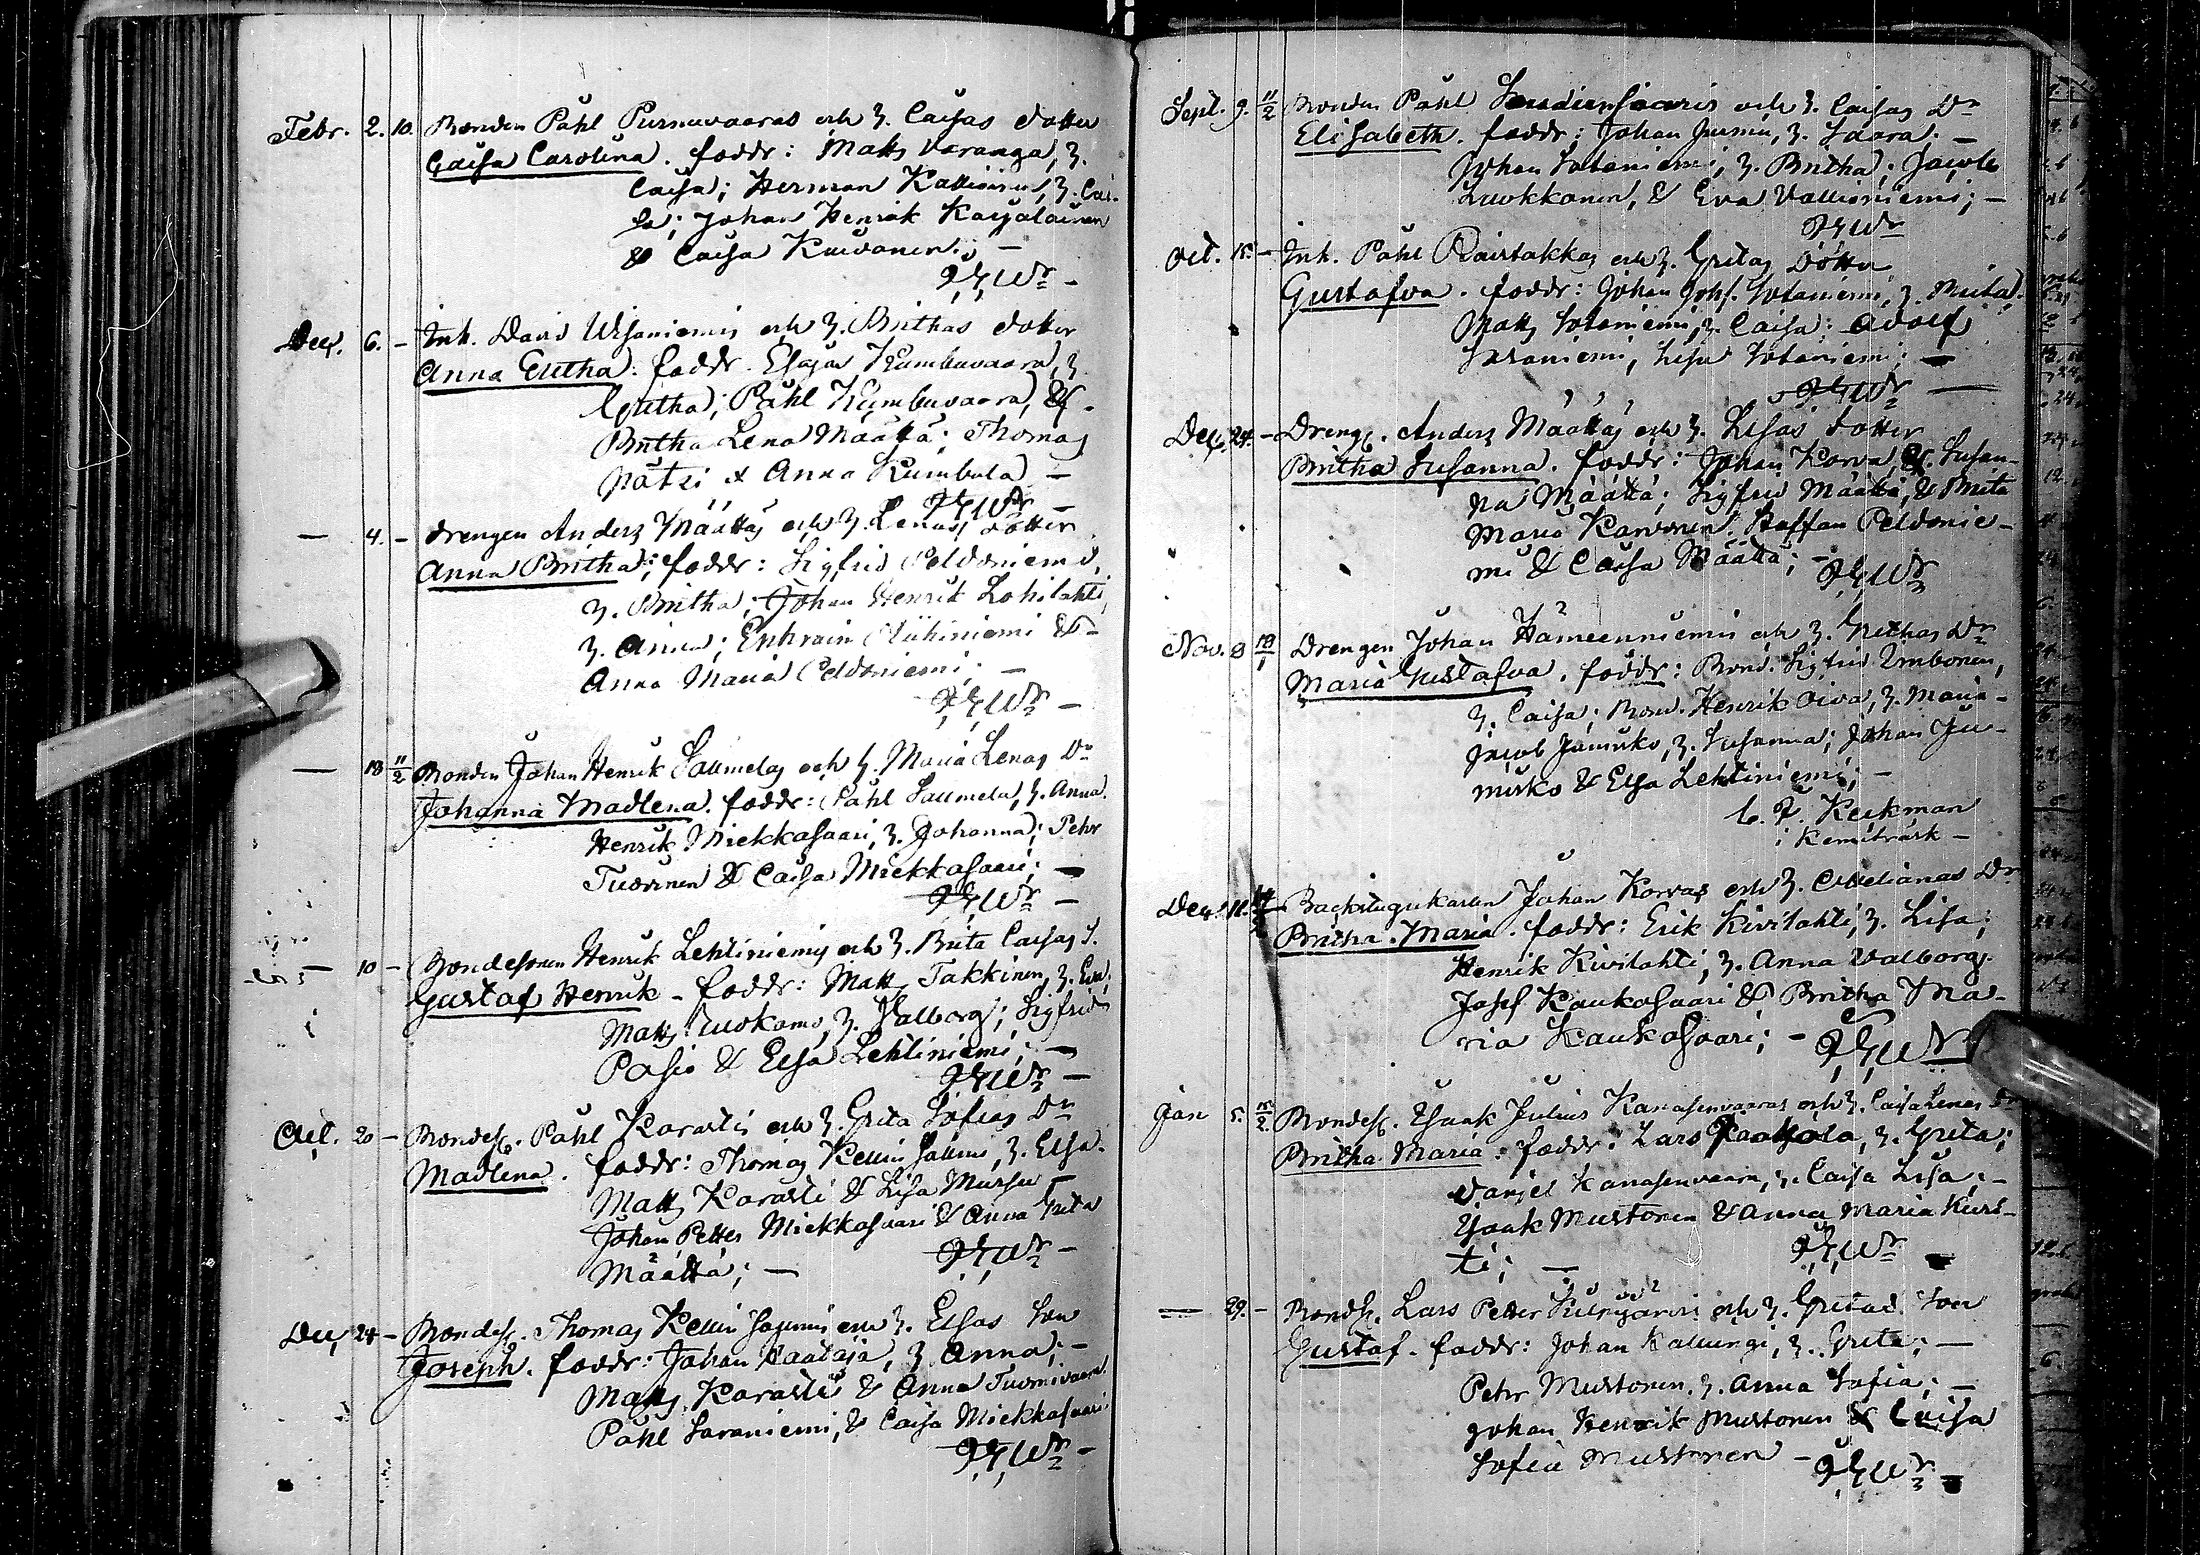 Febr. 2. 10. Bonden Påhl Purnuvaaras och h. Caisas dotter
Caisa Carolina. faddr: Matts Varanga, h.
Caisa; Herman Kallioinen, h. Cai-
sa; Johan Henrik Karjalainen
& Caisa Kuivanen; —
Dec. 6. – Inh. David Uisaniemis och h. Brithas dotter
Anna Gretha: faddr. Esajas Kumbuvaara, h.
Gretha; Påhl Kumbuvaara, &
Britha Lena Määttä; Thomas
Pätsi & Anna Kumbula —
— 4. – Drengen Anders Määttäs och h. Lenas dotter
Anna Britha; faddr: Sigfrid Peldoniemi,
h. Britha; Johan Henrik Lohilahti,
h. Anna; Ephraim Niihiniemi &
Anna Maria Peldoniemi; —
— 18 11/2 Bonden Johan Henrik Saumelas och h. Maria Lenas Dr
Johanna Madlena. faddr: Påhl Saumela, h. Anna.
Henrik Miekkasaari, h. Johanna; Pehr
Tuorinen & Caisa Miekkasaari; —
— 10 – Bondesonen Henrik Lehtiniemis och h. Brita Caisas S.
Gustaf Henrik – faddr: Matts Takkinen, h. Eva,
Matts Luokamo, h. Valborg; Sigfrid
Posio & Elsa Lehtiniemi; —
Oct. 20 – Bondes. Påhl Karastis och h. Greta Sofias Dr
Madlena. faddr: Thomas Kellin Salmi, h. Elsa.
Matts Karasti & Lisa Mursu —
Johan Petter Miekkasaari & Anna Greta
Määttä; —
Dec. 24 – Bondes. Thomas Kellin Salmis och h. Elsas Son
Joseph. faddr: Johan Kaataja, h. Anna; –
Matts Karasti & Anna Tuomivaara.
Påhl Saraniemi, & Caisa Miekkasaari
Sept. 9. 11/2 Bonden Påhl och h. Caisas Dr
Elisabeth. faddr: Johan Jurmu, h. Saara. —
Johan Sotaniemi, h. Britha; Jacob
Luokkanen, & Eva Vallioniemi; —
Oct. 15. – Inh. Påhl Räistakkas och h. Gretas Dotter
Gustafva. faddr: Johan Johs. Sotaniemi, h. Brita.
Matts Sotaniemi, h. Caisa: Adolf
Saraniemi, Lisa Sotaniemi; —
Dec. 24. – Dreng. Anders Määttäs och h. Lisas dotter
Britha Susanna. faddr: Johan Korva, & Susan-
na Määttä; Sigfrid Määttä, & Brita
Maria Karvonen. Staffan Peldonie-
mi & Caisa Määttä; –
Nov. 8 18/1 Drengen Johan Hämeenniemis och h. Grethas Dr
Maria Gustafva. faddr: Bond. Sigfrid Imbonen,
h. Caisa; Bond. Henrik Oiva, h. Maria –
Jacob Jamisko, h. Susanna; Johan Ju-
misko & Elsa Lehtiniemi; –
C. F. Keckman
i Kemiträsk –
Dec. 11. Backstugukarlen Johan Korvas och h. Dr
Britha Maria. faddr: Erik Kivilahti, h. Lisa;
Henrik Kivilahti, h. Anna Valborg.
Josef Kaukosaari & Britha Ma-
ria Kaukosaari; –
Jan 5. 15/2. Bondes. Isaak Julius Kanasenvaaras och h. Caisa Lenas Dr
Britha Maria: faddr: Lars Kaakkola, h. Greta;
Daniel Kanasenvaara, h. Caisa Lisa; –
Isaak Mustonen & Anna Maria Kurt-
ti; —
— 29. – Bonds. Lars Petter Suilujärvis och h. Gretas Son
Gustaf. faddr: Johan Kallungi, h. Greta; —
Pehr Mustonen, h. Anna Sofia; –
Johan Henrik Mustonen & Caisa
Sofia Mustonen –